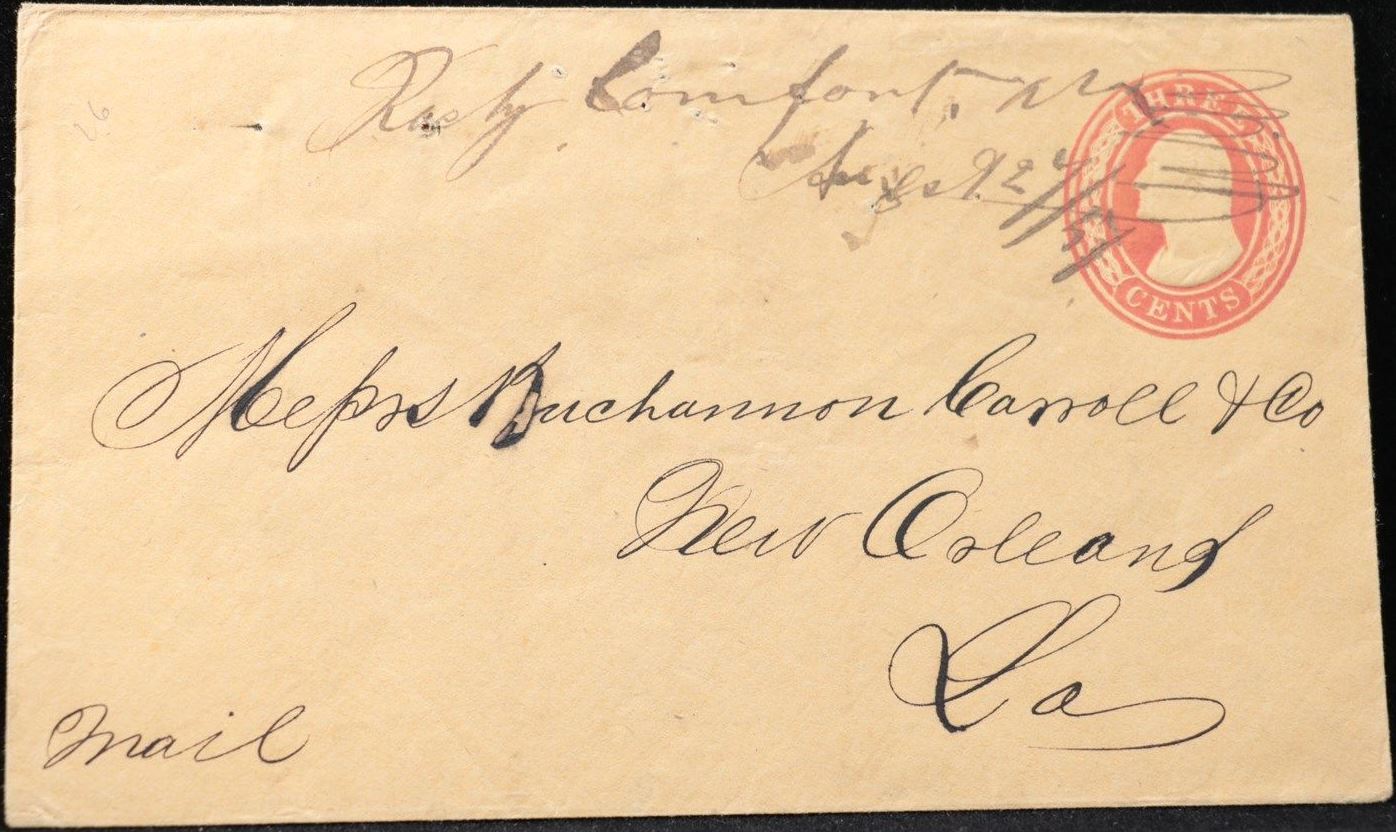 26
Rocky Comfort,
THREE
CENTS
Messrs Buchannon Carroll & Co
New Orleans
La
Mail